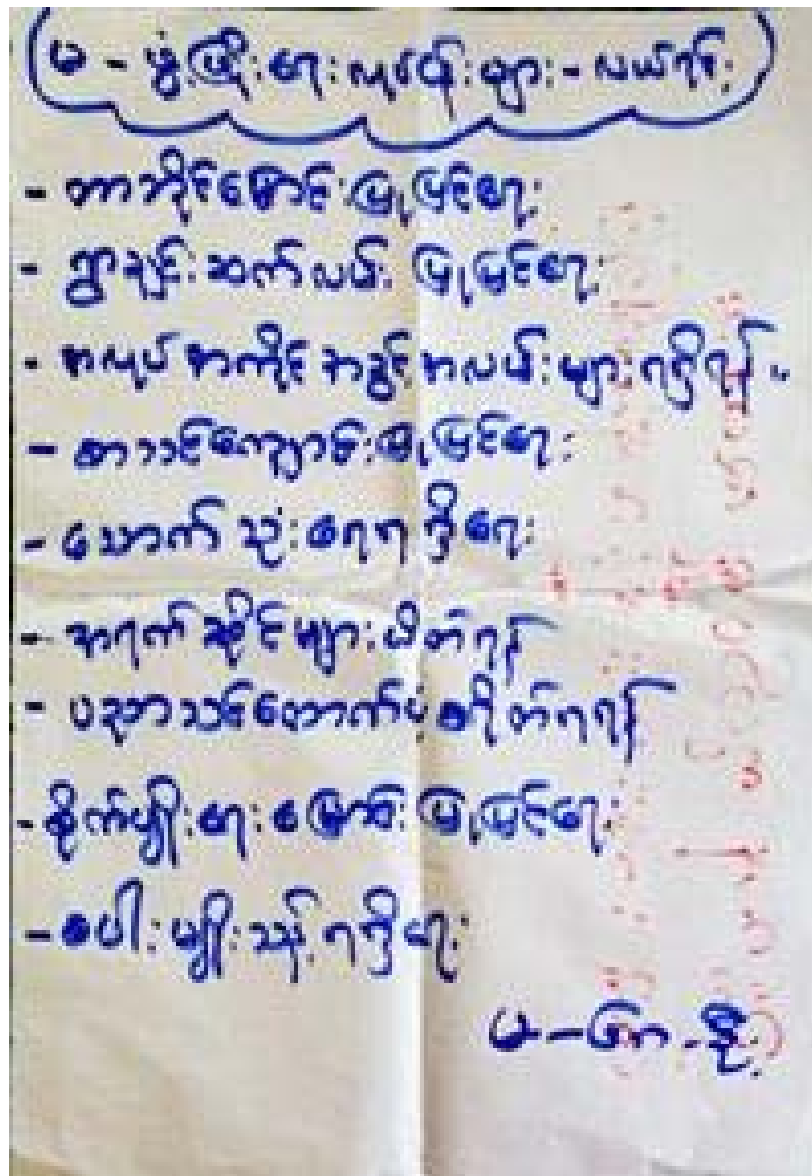 မ - ဖွံ့ဖြိုးရေးလုပ်ငန်းများ - လယ်ကွင်း
- တာဘိုင်မြောင်းပြုပြင်ရေး
- ရွာချင်းဆက်လမ်း ပြုပြင်ရေး
- အလုပ်အကိုင်အခွင့်အလမ်းများရရှိရန်။
- စာသင်ကျောင်းပြုပြင်ရေး
- သောက်သုံးရေရရှိရေး
- အရက်ဆိုင်များပိတ်ရန်
- ပညာသင်ထောက်ပံ့စရိတ်ရရန်
- စိုက်ပျိုးရေးမြောင်းပြုပြင်ရေး
- စပါးမျိုးသန့်ရရှိရေး